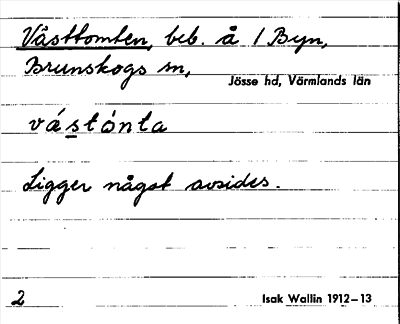 Västtomten, beb. å 1 Byn,
Brunskogs sn,
Jösse hd, Värmlands län
vástónta
Ligger något avsides.
2
Isak Wallin 1912–13